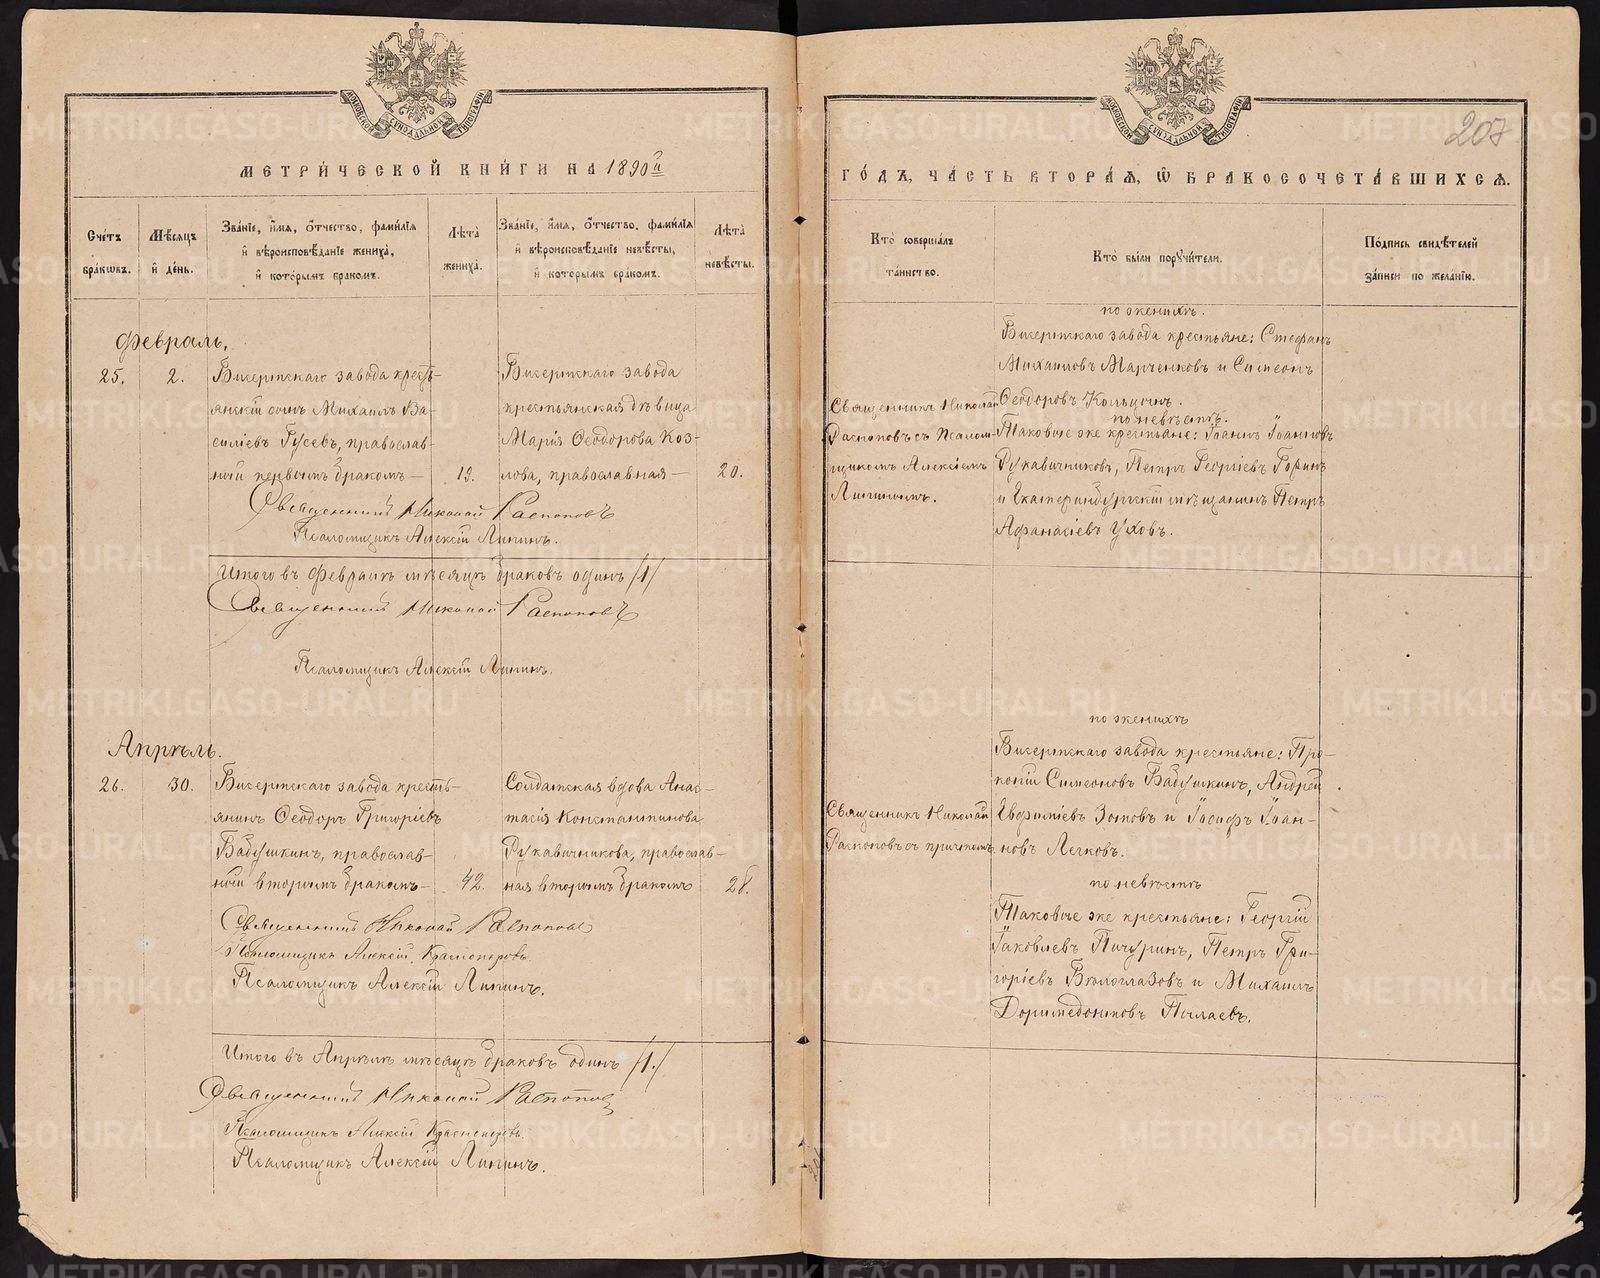 МЕТРИЧЕСКОЙ КНИГИ НА 1890й
Счетъ браковъ.
Мѣсяцъ и день.
Званіе, имя, отчество, фамилія и вѣроисповѣданіе жениха, и которымъ бракомъ.
Лѣта жениха.
Званіе, имя, отчество, фамилія и вѣроисповѣданіе невѣсты, и которымъ бракомъ.
Лѣта невѣсты.
Февраль.
25. 2.
Бисертскаго завода кресть-
янскій сынъ Михаилъ Ва-
силіевъ Гусевъ, православ-
ный первымъ бракомъ— 19.
Бисертскаго завода
крестьянская дѣвица
Марія Ѳеодорова Коз-
лова, православная— 20.
Священникъ Николай Распоповъ
Псаломщикъ Алексій Липинъ.
Итого въ Февралѣ мѣсяцѣ браковъ одинъ /1/
Священникъ Николай Распоповъ
Псаломщикъ Алексій Липинъ.
Апрѣль.
26. 30.
Бисертскаго завода кресть-
янинъ Ѳеодоръ Григоріевъ
Бабушкинъ, православ-
ный вторымъ бракомъ— 42.
Солдатская вдова Анас-
тасія Константинова
Рукавичникова, православ-
ная вторымъ бракомъ 28.
Священникъ Николай Распоповъ
Псаломщикъ Алексій Красноперовъ
Псаломщикъ Алексій Липинъ.
Итого въ Апрѣлѣ мѣсяцѣ браковъ одинъ /1./
Священникъ Николай Распоповъ
Псаломщикъ Алексій Красноперовъ
Псаломщикъ Алексій Липинъ.
207
ГОДЪ, ЧАСТЬ ВТОРАЯ, Ѡ БРАКОСОЧЕТАВШИХСЯ.
Кто совершалъ таинство.
Кто были поручители.
Подпись свидѣтелей записи по желанію.
по женихѣ.
Бисертскаго завода крестьяне: Стефанъ
Михаиловъ Марченковъ и Симеонъ
Ѳеодоровъ Кольцовъ.
по невѣстѣ.
Таковые же крестьяне: Іоаннъ Іоанновъ
Рукавичниковъ, Петръ Георгіевъ
и Екатеринбургскій мѣщанинъ Петръ
Афанасіевъ Уховъ.
Священникъ Николай
Распоповъ съ Псалом-
щикомъ Алексіемъ
Липинымъ.
по женихѣ
Бисертскаго завода крестьяне: Про-
копій Симеоновъ Бабушкинъ, Андрей
Евфиміевъ Зотовъ и Іосифъ Іоан-
новъ Легковъ.
Священникъ Николай
Распоповъ съ причтомъ
по невѣстѣ
Таковые же крестьяне: Георгій
Іаковлевъ Пичугинъ, Петръ Гри-
горіевъ Бѣлоглазовъ и Михаилъ
Доримедонтовъ Пылаевъ.
METRIKI.GASO-URAL.RU